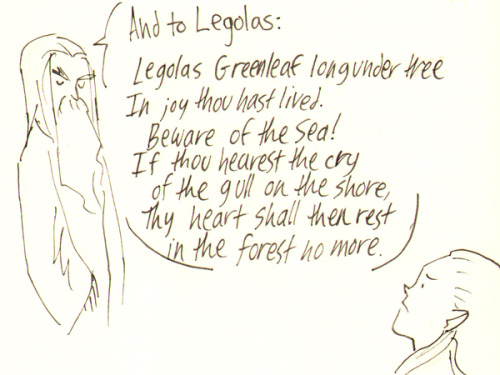 And to Legolas:
Legolas Greenleaf long under tree
In joy thou hast lived.
Beware of the Sea!
If thou hearest the cry
of the gull on the shore,
Thy heart shall then rest
in the forest no more.